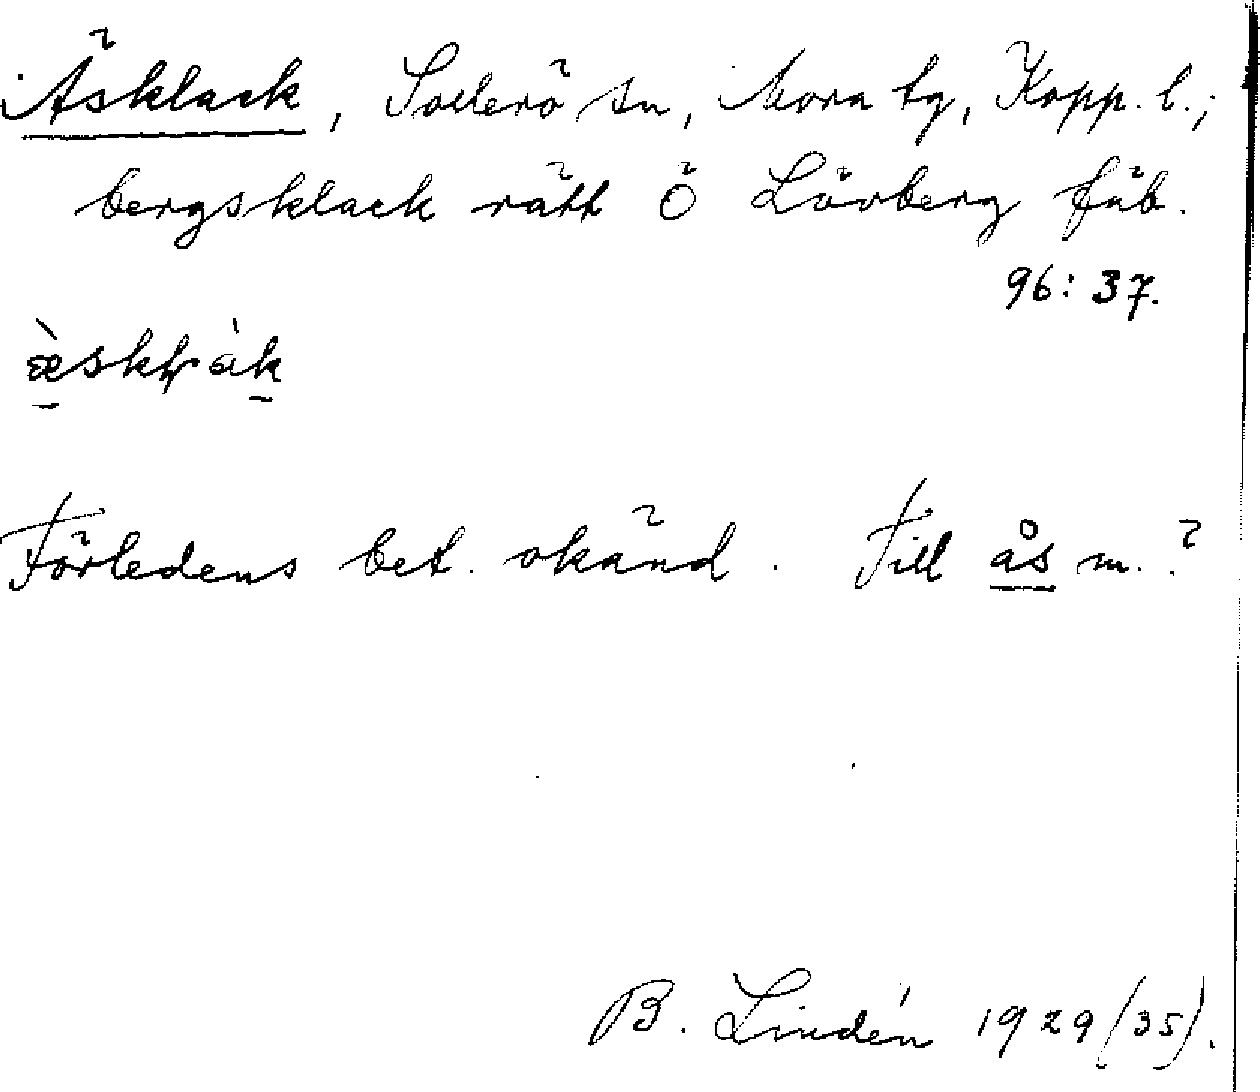 Äsklack, Sollerö sn, Mora tg, Kopp. l.;
bergsklack rätt Ö Lövberg fäb.
96:37.
Förledens bet. okänd. Till ås m.?
B. Lindén 1929 (35).